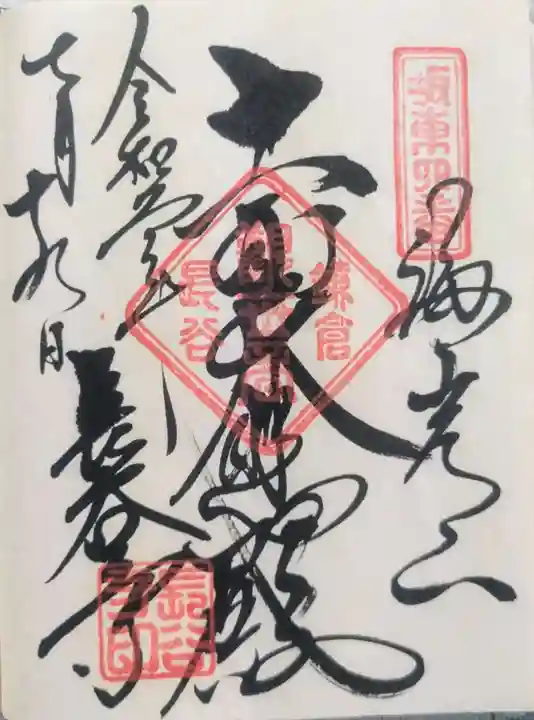 坂東四番
海光山
十一面大悲殿
鎌倉
観世音
長谷
令和元年
七月十九日
長谷寺
長谷寺印